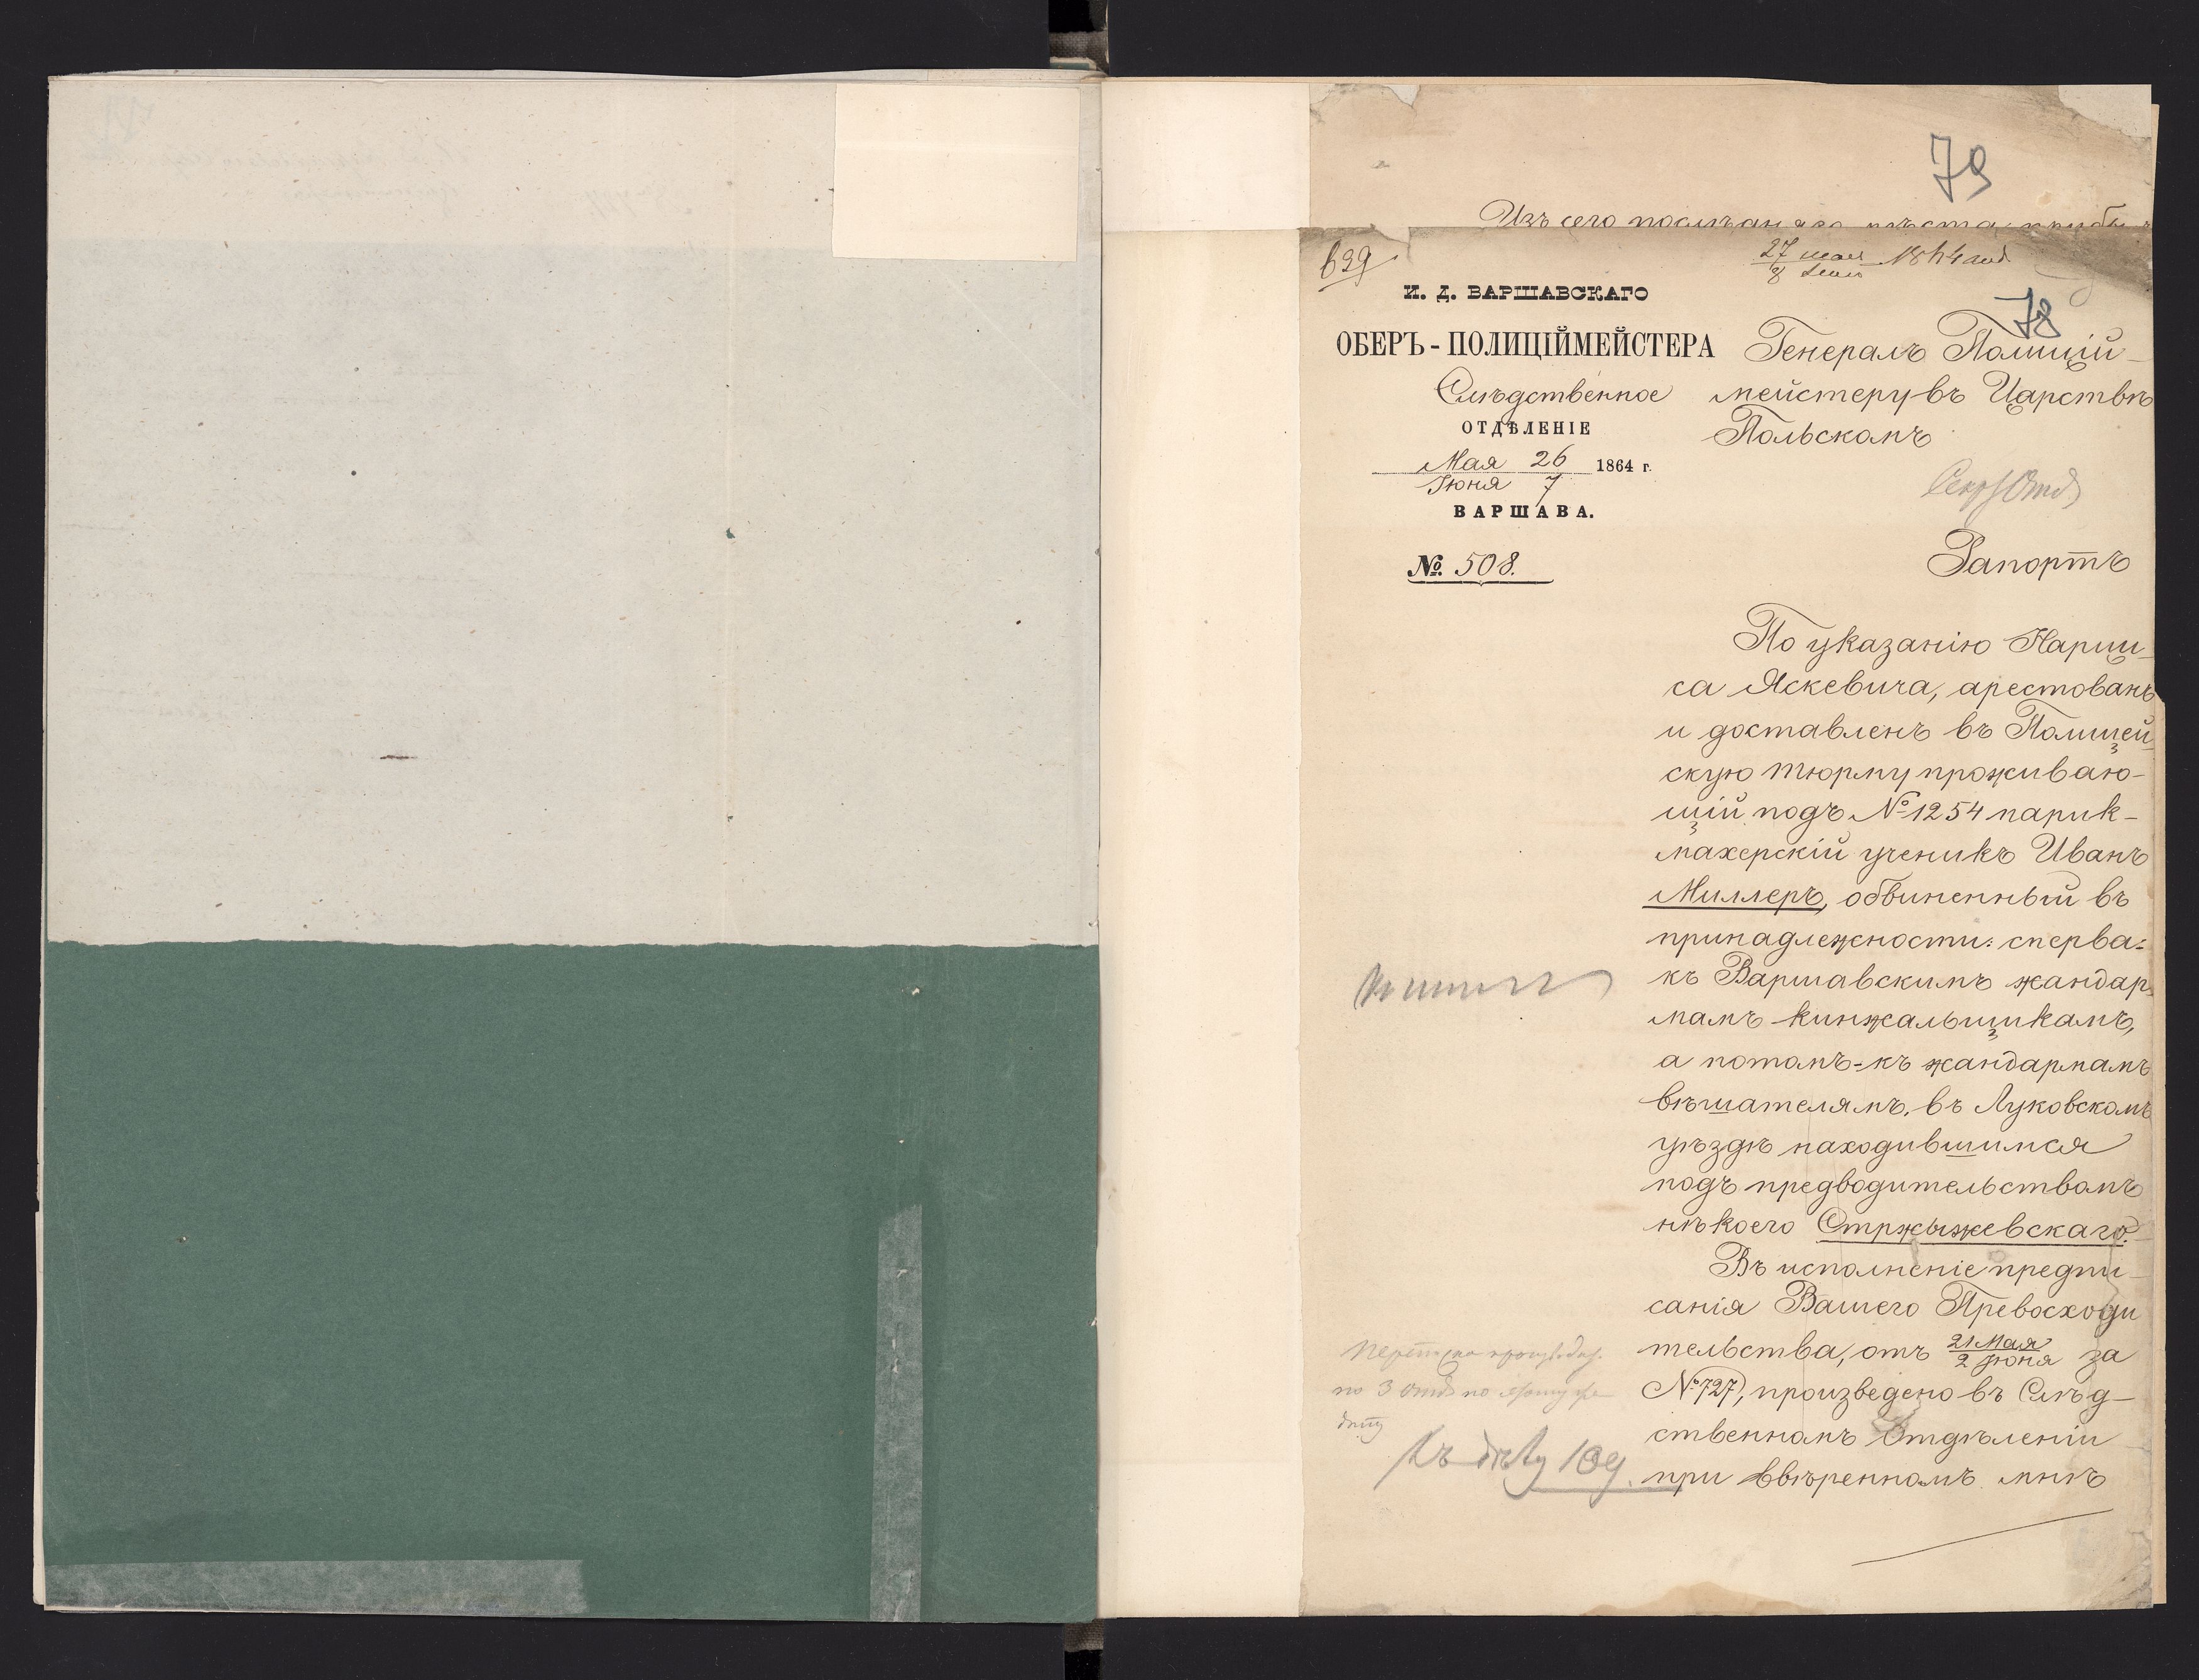 79
Изъ сего
639
27 мая 1864 год
8 Іюн
78
И. Д. ВАРШАВСКАГО
ОБЕРЪ-ПОЛИЦІЙМЕЙСТЕРА
Слѣдственное
ОТДѢЛЕНІЕ
Мая 26 1864 г.
Іюня 7
ВАРШАВА.
№ 508.
Генералъ Полицій-
мейстеру въ Царствѣ
Польскомъ
Рапортъ
По указанію Нарци-
са Яскевича, арестованъ
и доставленъ въ Полицей-
скую тюрму проживаю-
щій подъ № 1254 парик-
махерскій ученикъ Иванъ
Миллеръ, обвиненный въ
принадлежности: сперва-
къ Варшавскимъ жандар-
мамъ кинжальщикамъ,
а потомъ-къ жандармамъ
вѣшателямъ, въ Луковскомъ
уѣздѣ находившимся
подъ предводительствомъ
нѣкоего Стржыжевскаго.
Въ исполненіе предпи-
санія Вашего Превосходи
тельства, отъ 21 Мая за
2 Іюня
№ 727, произведено въ Слѣд-
ственномъ Отдѣленіи
при ввѣренномъ мнѣ
по 3 отд по
Къ дѣлу 109.